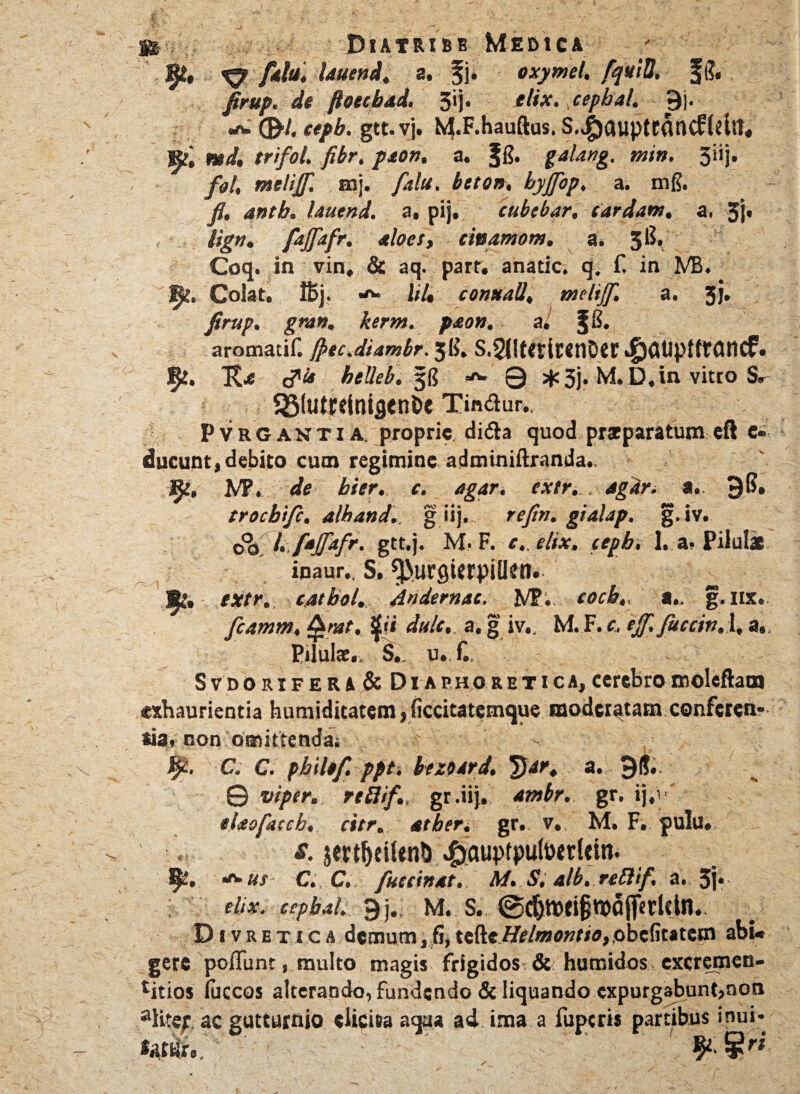 DIATRIBE MEDICA
℞. 🜄 ſalu. lauend. a. ℥j. oxymel. ſquill. ℥ß.
ſirup. de ſtoechad. ʒij. elix. cephal. ℈j.
ceph. gtt. vj. M.F. hauſtus. S. Hauptträncklein.
℞. rad. trifol. fibr. pæon. a. ℥ß. galang. min. ʒiij.
fol. meliſſ. mj. ſalu. beton. hyſſop. a. mß.
fl. anth. lauend. a. pij. cubebar. cardam. a. ʒj.
lign. ſaſſafr. aloes, cinamom. a. ʒß.
Coq. in vin. & aq. part. anatic. q. ſ. in MB.
℞. Colat. ℔j. lil. conuall. meliſſ. a. ʒj.
ſirup. gran. kerm. pæon. a. ℥ß.
aromatiſ. ſpec. diambr. ʒß. S. Alterirender Haupttranck.
℞. helleb. ℥ß ʒj. M. D. in vitro S.
Blutreinigende Tinctur.
PVRGANTIA proprie dicta quod præparatum eſt e-
ducunt, debito cum regimine adminiſtranda.
℞. MP. de hier. c. agar. extr. agar. a. ℈ß.
trochiſc. alhand. g iij. reſin. gialap. g. iv.
l. ſaſſafr. gtt. j. M. F. c. elix. ceph. l. a. Pilulæ
inaur. S. Purgierpillen.
℞. extr. cathol. Andernac. MP. coch. a. g. iix.
ſcamm. dulc. a. g iv. M. F. c. eſſ. ſuccin. l. a.
Pilulæ. S. u. ſ.
SVDORIFERA & DIAPHORETICA, cerebro moleſtam
exhaurientia humiditatem, ſiccitatemque moderatam conferen-
tia, non omittenda:
℞. C. C. philoſ. ppt. bezoard. a. ℈ß.
viper. rectif. gr. iij. ambr. gr. ij.
elæoſacch. citr. æther. gr. v. M. F. pulu.
s. zertheilend Hauptpulverlein.
℞. us C. C. ſuccinat. M. S. alb. rectif. a. ʒj.
elix. cephal. ℈j. M. S. Schweißwäſſerlein.
DIVRETICA demum, ſi, teſte Helmontio, obeſitatem abi-
gere poſſunt, multo magis frigidos & humidos excremen-
titios ſuccos alterando, fundendo & liquando expurgabunt, non
aliter ac gutturnio elicita aqua ad ima a ſuperis partibus inui-
tatur.
℞. ri